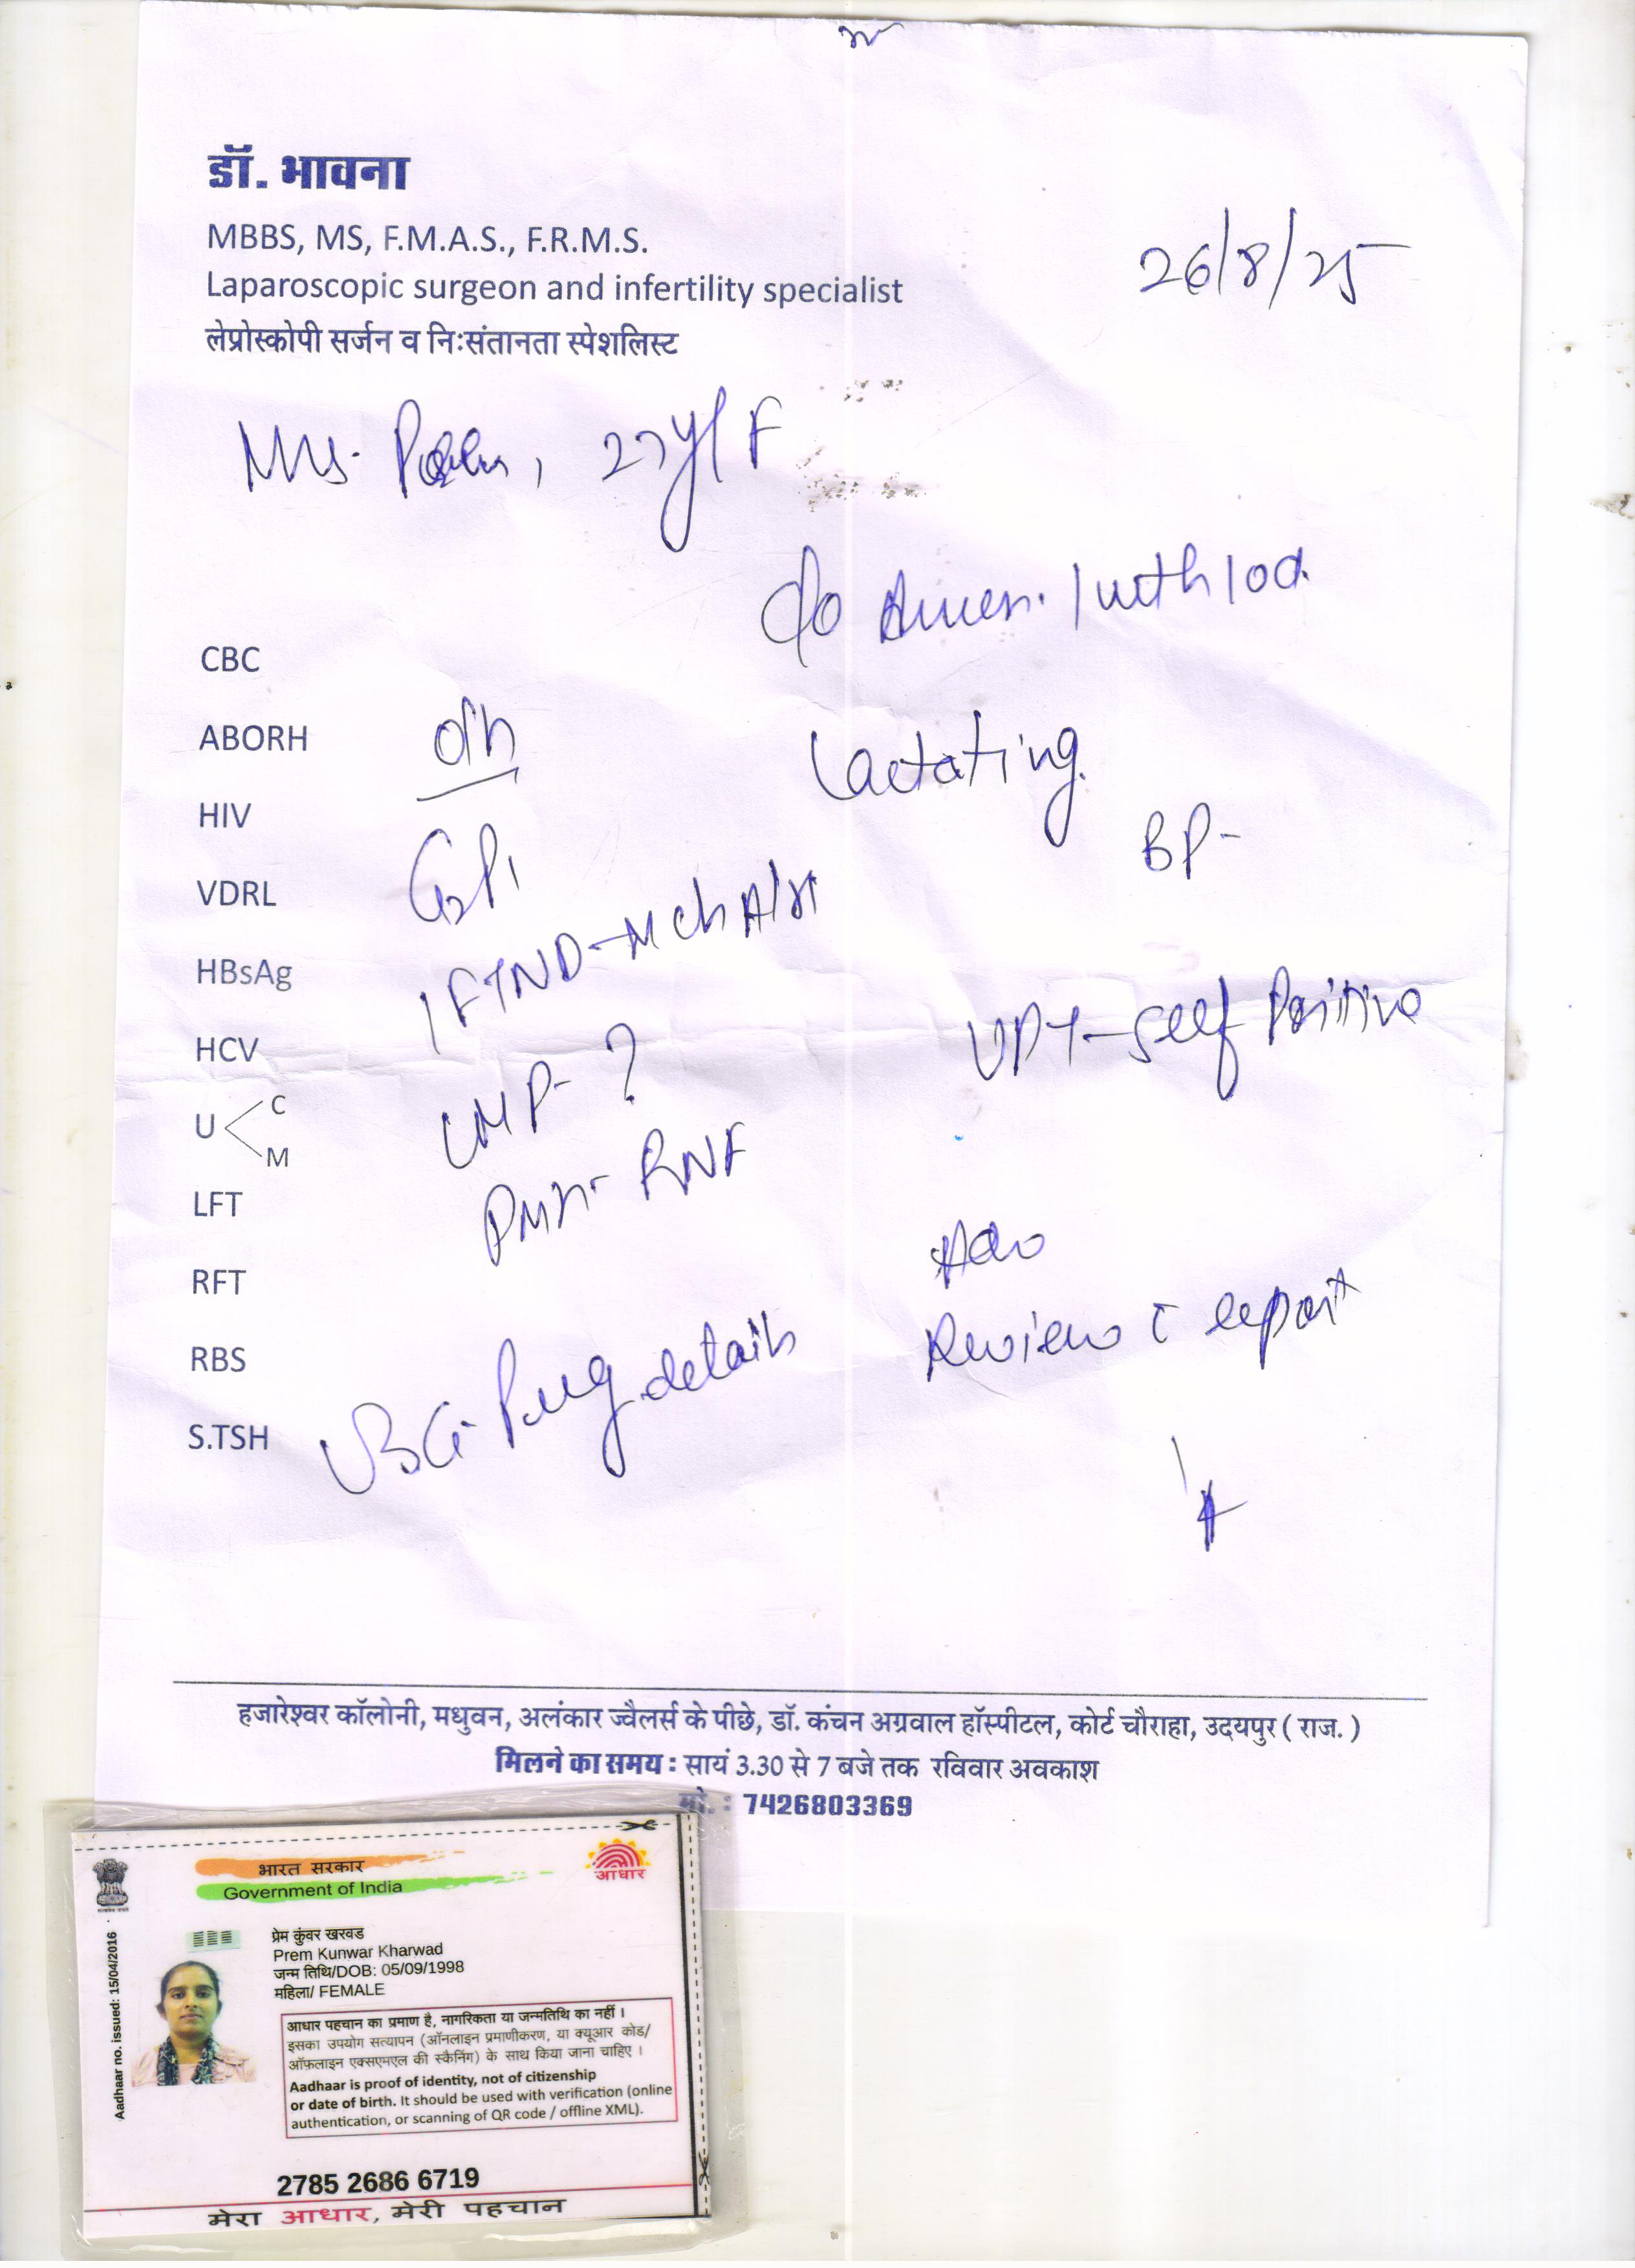 डॉ. भावना
MBBS, MS, F.M.A.S., F.R.M.S.
26/8/25
Laparoscopic surgeon and infertility specialist
लेप्रोस्कोपी सर्जन व निःसंतानता स्पेशलिस्ट
Mrs. 27y/F
c/o Amen. 1 mth 10d.
CBC
ABORH
o/h
Lactating
HIV
BP-
G2P1
VDRL
1 FTND - M ch A/H
HBsAg
UPT - self Positive
HCV
LMP - ?
U < C
M
LFT
PMH - RNF
RFT
Adv
Review c̄ report
RBS
USG - Preg details
S.TSH
हजारेश्वर कॉलोनी, मधुवन, अलंकार ज्वैलर्स के पीछे, डॉ. कंचन अग्रवाल हॉस्पीटल, कोर्ट चौराहा, उदयपुर ( राज. )
मिलने का समय : सायं 3.30 से 7 बजे तक रविवार अवकाश
मो. : 7426803369
भारत सरकार
Government of India
आधार
Aadhaar no. issued: 15/04/2016
प्रेम कुंवर खरवड
Prem Kunwar Kharwad
जन्म तिथि/DOB: 05/09/1998
महिला/ FEMALE
आधार पहचान का प्रमाण है, नागरिकता या जन्मतिथि का नहीं ।
इसका उपयोग सत्यापन (ऑनलाइन प्रमाणीकरण, या क्यूआर कोड/
ऑफ़लाइन एक्सएमएल की स्कैनिंग) के साथ किया जाना चाहिए ।
Aadhaar is proof of identity, not of citizenship
or date of birth. It should be used with verification (online
authentication, or scanning of QR code / offline XML).
2785 2686 6719
मेरा आधार, मेरी पहचान